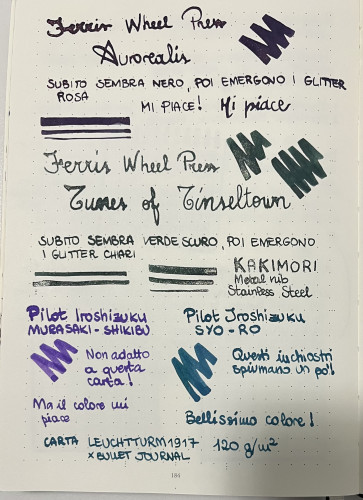 Ferris Wheel Press
Aurorealis
SUBITO SEMBRA NERO, POI EMERGONO I GLITTER
ROSA
MI PIACE! Mi piace
Ferris Wheel Press
Tunes of Tinseltown
SUBITO SEMBRA VERDE SCURO, POI EMERGONO
I GLITTER CHIARI
KAKIMORI
Metal nib
Stainless Steel
Pilot Iroshizuku
MURASAKI-SHIKIBU
Pilot Iroshizuku
SYO-RO
Non adatto
a questa
carta!
Questi inchiostri
spiumano un po'!
Ma il colore mi
piace
Bellissimo colore!
CARTA LEUCHTTURM1917 120 g/m²
x BULLET JOURNAL